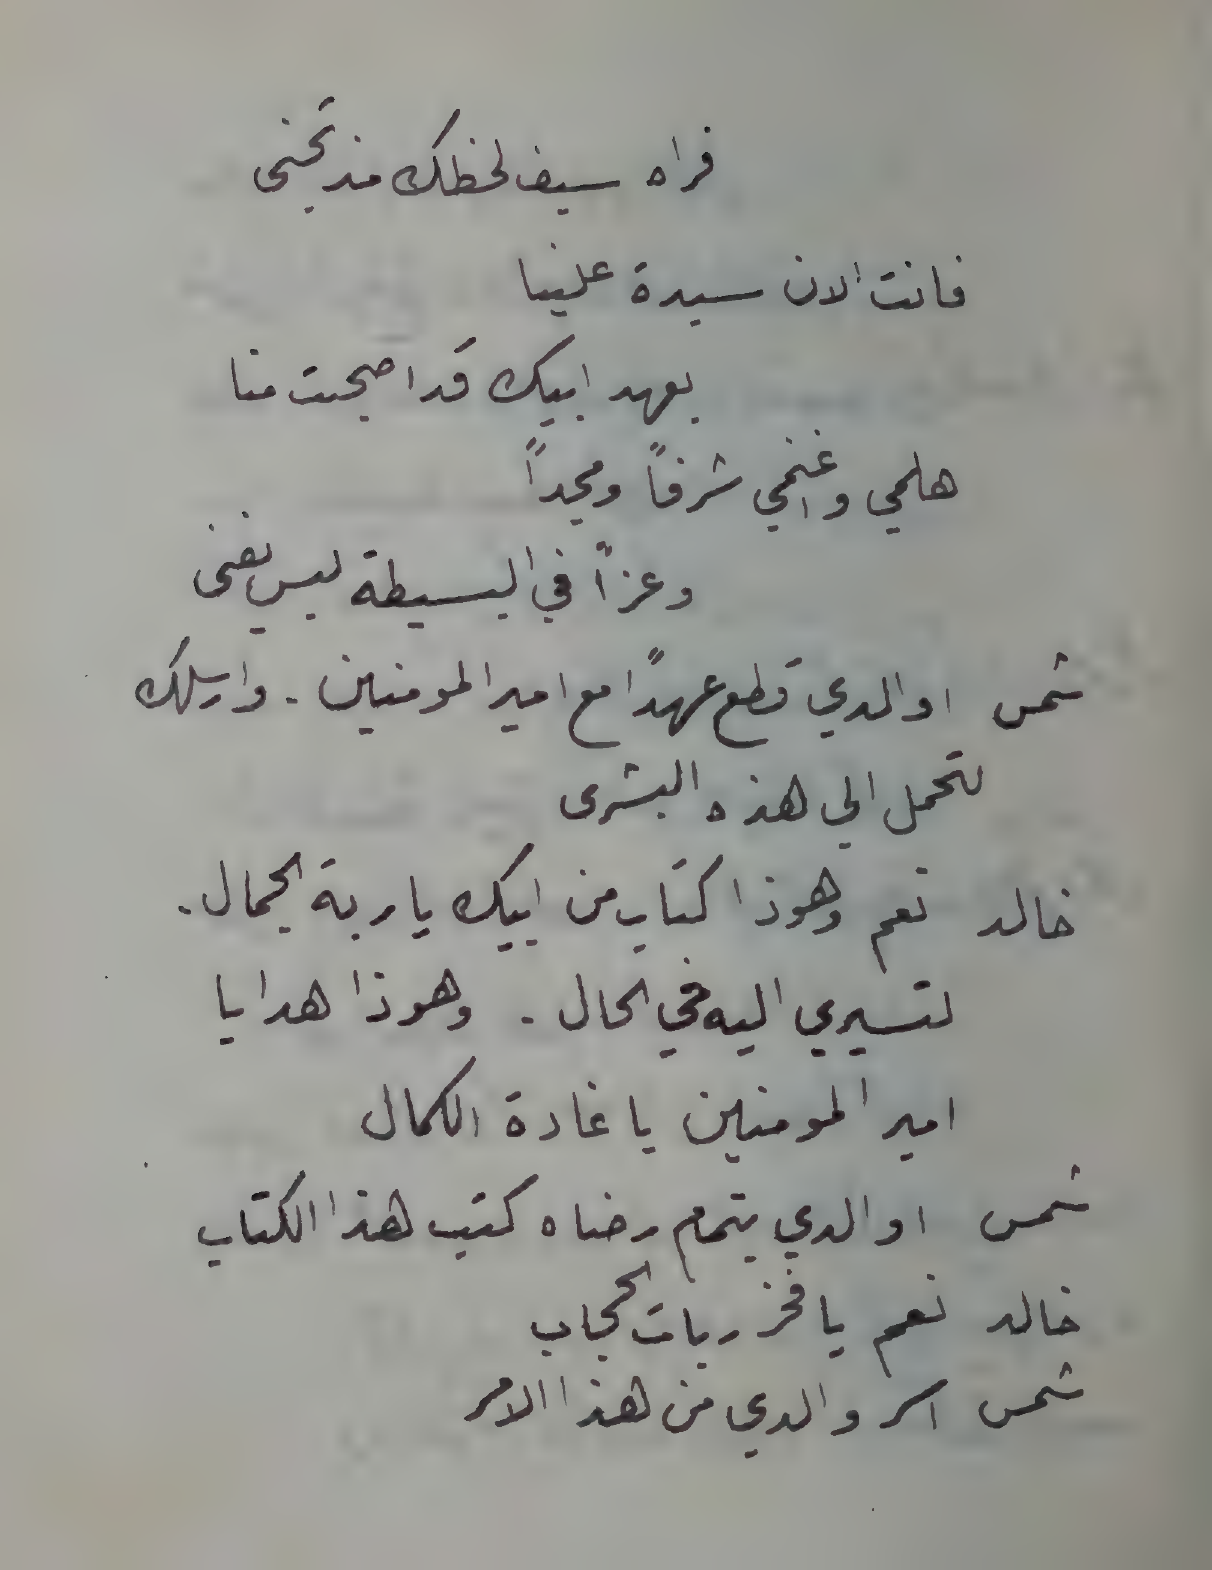 فراه سيف لحظك مذ تجنى
فانت الان سيدة علينا
بعهد ابيك قد اصبحت منا
هلمي واغنمي شرفاً ومجداً
وعزاً في البسيطة ليس يفنى
شمس اوالدي قطع عهداً مع امير المومنين . وارسلك
لتحمل الي هذه البشرى
خالد نعم وهوذا كتاب من ابيك يا ربة الجمال .
لتسيري اليه في الحال . وهوذا هدايا
امير المومنين يا غادة الكمال
شمس اوالدي بتمام رضاه كتب هذا الكتاب
خالد نعم يا فخر ربات الحجاب
شمس اسر والدي من هذا الامر